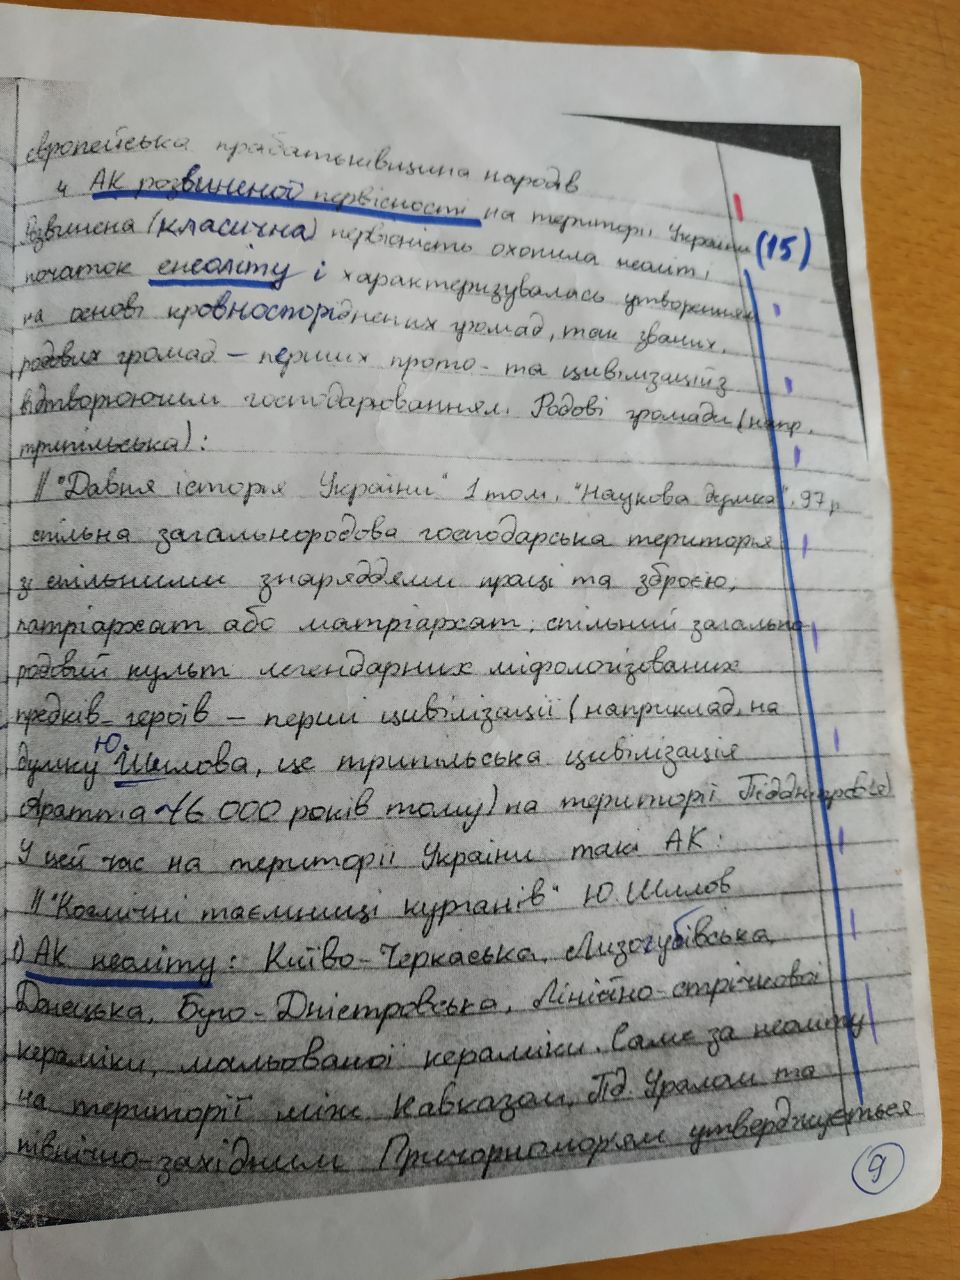 європейська прабатьківщина народів
4. АК розвиненої первісності на території України
Розвинена (класична) первісність охопила неоліт і (15)
початок енеоліту і характеризувалась утворенням
на основі кровноспоріднених громад, так званих,
родових громад – перших прото- та цивілізацій з
відтворюючим господарюванням. Родові громади (напр.
трипільська):
// "Давня історія України" 1 том, "Наукова думка", 97 р
спільна загальнородова господарська територія
зі спільними знаряддями праці та зброєю,
патріархат або матріархат, спільний загально-
родовий культ легендарних міфологізованих
предків-героїв – перші цивілізації (наприклад, на
думку Ю. Шилова, це трипільська цивілізація
Аратта ~6 000 років тому) на території Піддніпров'є)
У цей час на території України такі АК:
// "Космічні таємниці курганів" Ю. Шилов
1) АК неоліту: Київо-Черкаська, Лизогубівська,
Донецька, Буго-Дністровська, Лінійно-стрічкової
кераміки, мальованої кераміки. Саме за неоліту
на території між Кавказом, Пд. Уралом та
північно-західним Причорномор'ям утверджується
9